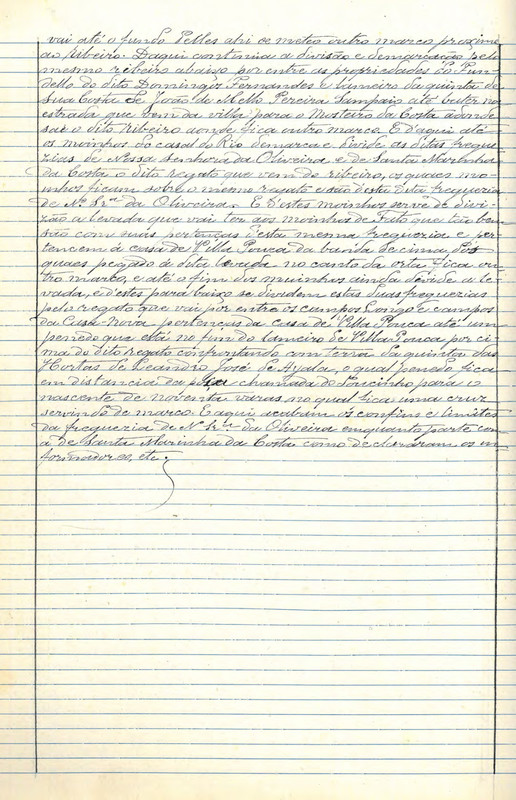 vai até o fundo Pelles ahi se meteo outro marco proximo
ao ribeiro. D'aqui continua a divisão e demarcação pelo
mesmo ribeiro abaixo por entre as propriedades do Fun-
dello do dito Domingos Fernandes e lameiro da quinta de
Sua Costa de João de Mello Pereira Sampaio até bater na
estrada que vem da villa para o Mosteiro da Costa adonde
sae o dito ribeiro aonde fica outro marco. E d'aqui até
os moinhos do casal do Rio demarca e divide as ditas fregue-
zias de Nossa senhora da Oliveira e de Santa Marinha
da Costa o dito regato que vem do ribeiro, os quaes moi-
nhos ficam sobre o mesmo regato e são d'esta dita freguezia
de Nª Srª da Oliveira. E d'estes moinhos serve de divi-
zão a levada que vai ter aos moinhos de Fato que tão bem
são com suas pertenças d'esta mesma freguezia e per-
tencem á casa de Villa Pouca da banda de cima, dos
quaes pegado á dita levada no canto da orta fica ou-
tro marco, e até o fim dos muinhos ainda divide a le-
vada, e d'estes para baixo se dividem estas duas freguezias
pelo regato que vai por entre os campos Longo e campos
da Casa Nova pertenças da casa de Villa Pouca até um
penedo que está no fundo do lameiro de Villa Pouca por ci-
ma do dito regato confrontando com terra da quinta das
Hortas de Leandro José de Ayala, o qual penedo fica
em distancia da chamada do para o
nascente de noventa varas no qual fica uma cruz
servindo de marco. E aqui acabam os confins e limites
da freguezia de Nª Srª da Oliveira emquanto parte com
a de Santa Marinha da Costa como declararam os in-
formadores, etc.